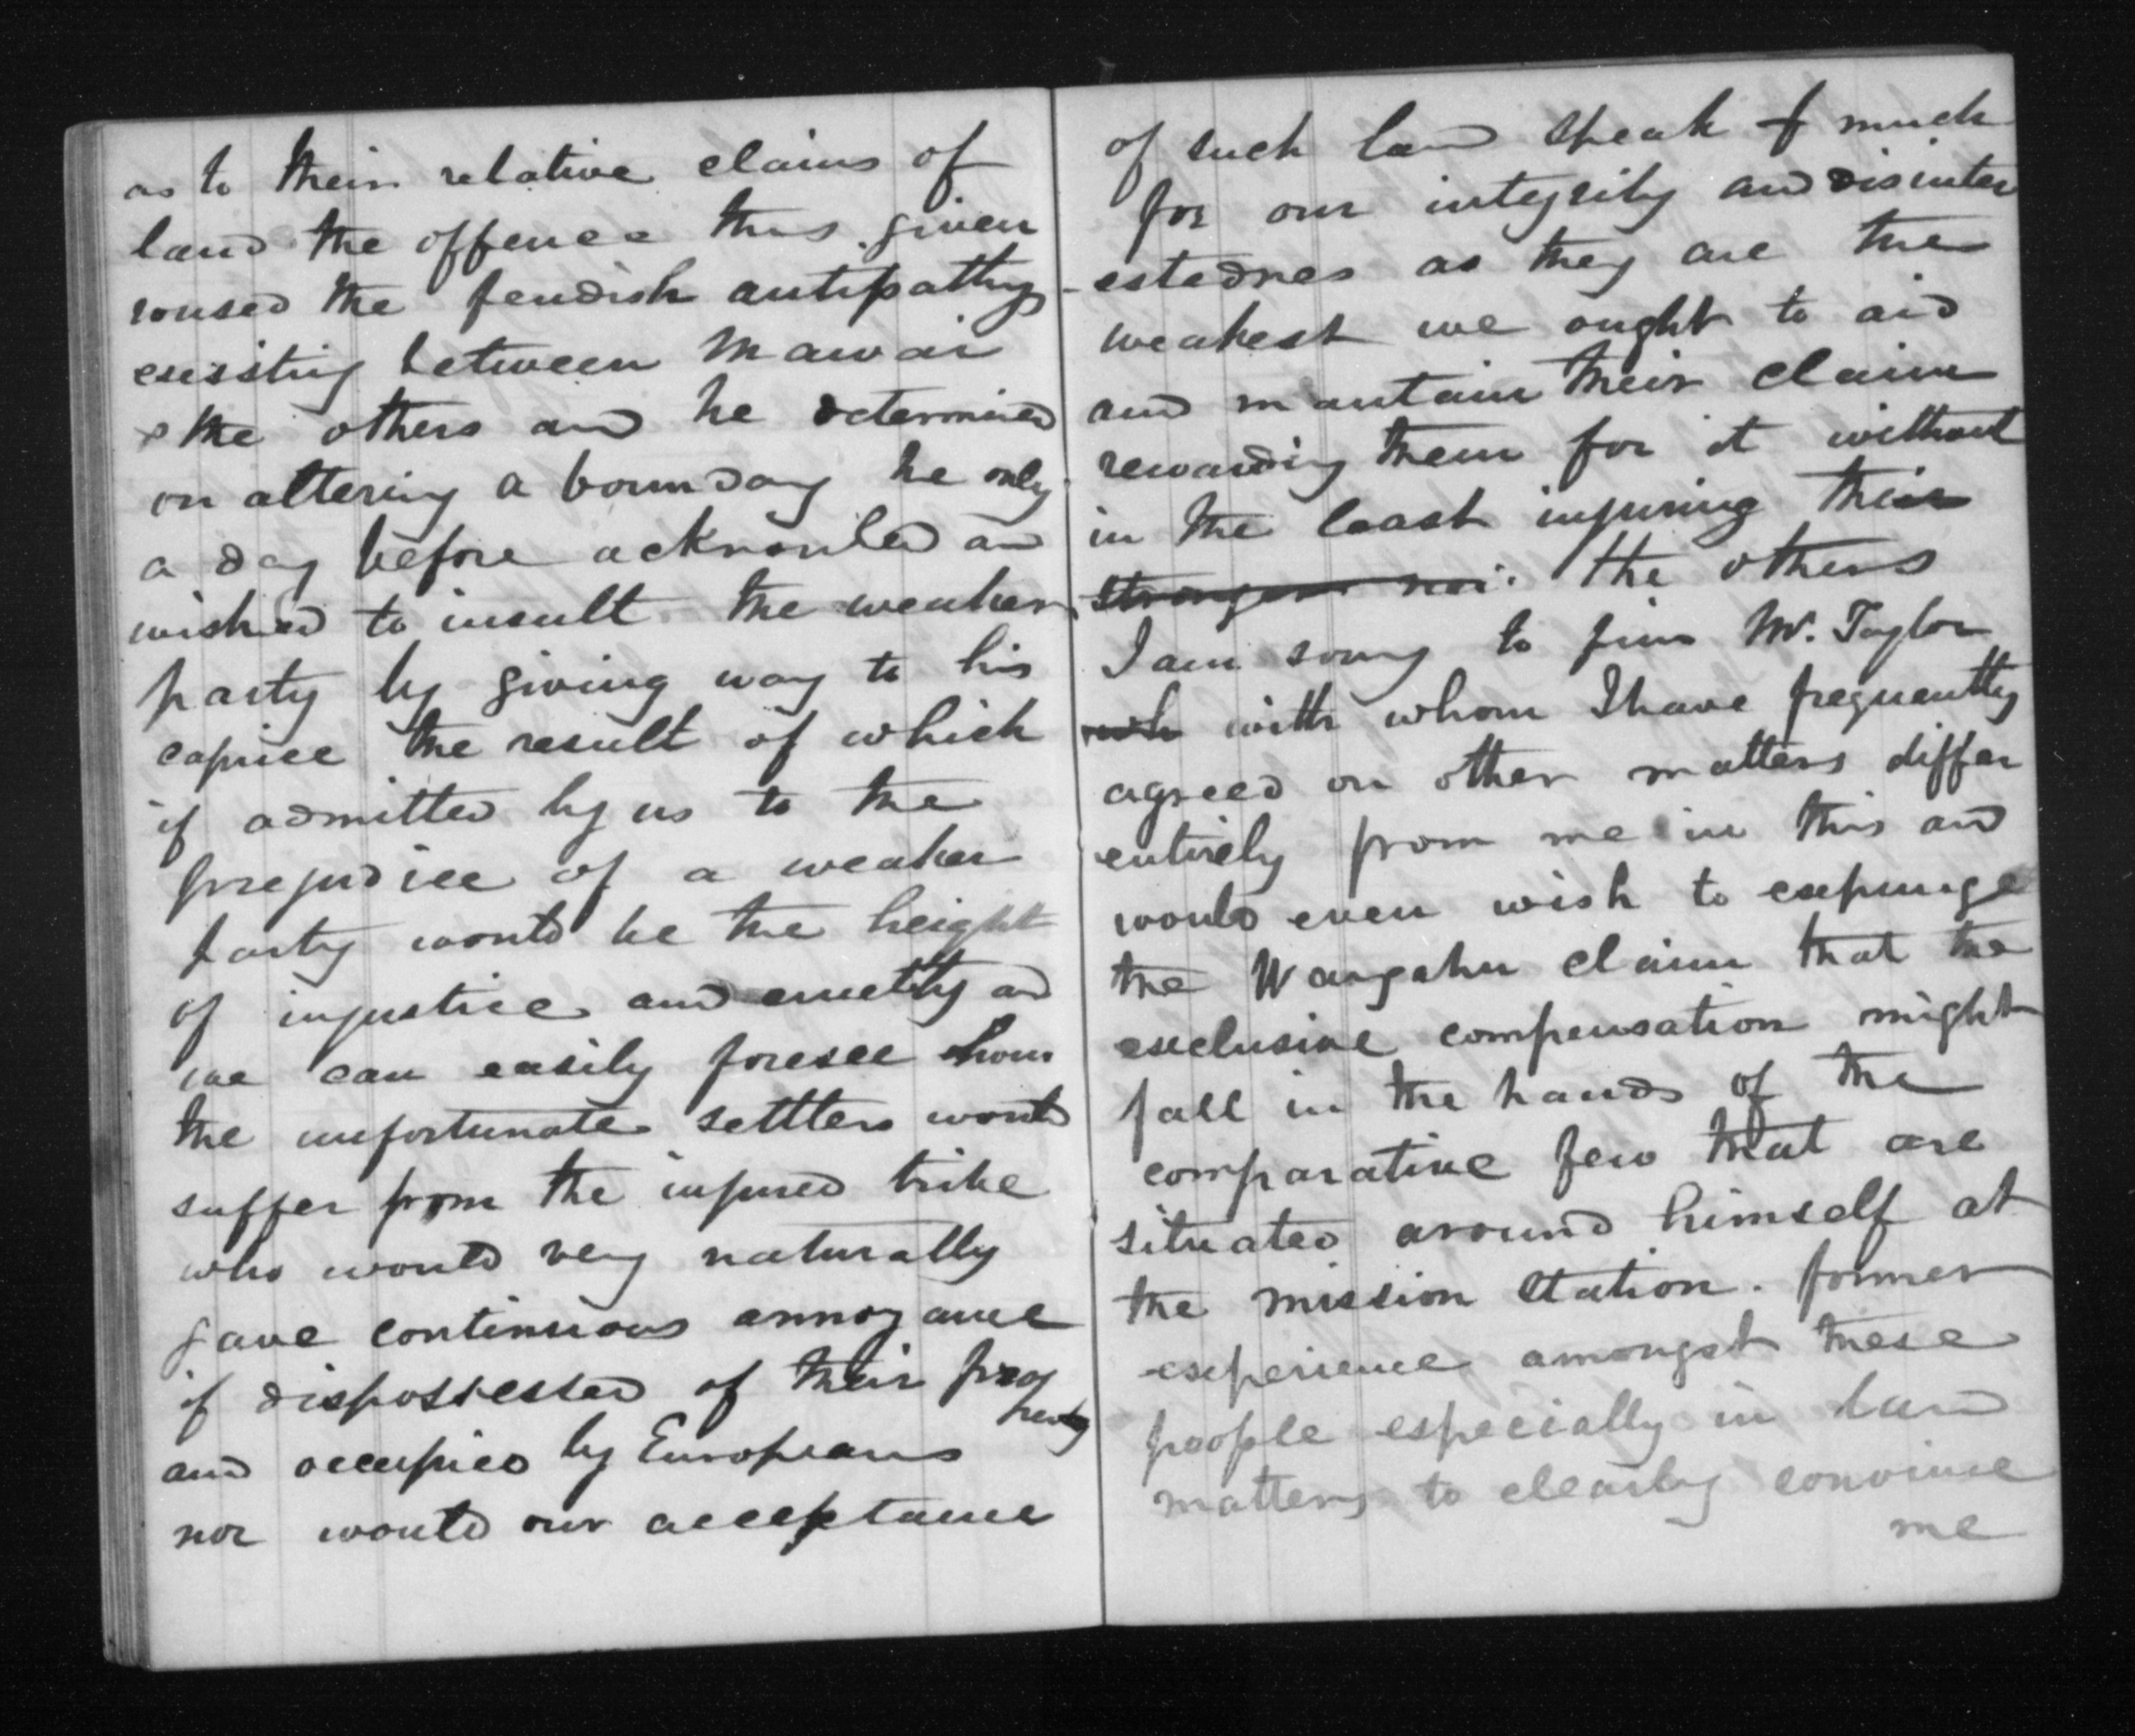 as to their relative claims of
land the offence thus given
roused the feudish antipathy
existing between Mawai
& the others and he determined
on altering a boundary he only
a day before acknowled and
wished to insult the weaker
party by giving way to his
caprice the result of which
if admitted by us to the
prejudice of a weaker
party would be the height
of injustice and cruelty and
we can easily foresee how
the unfortunate settlers would
suffer from the injured tribe
who would very naturally
gave continuous annoyance
if dispossessed of their prop
perty
and occupied by Europeans
nor would our acceptance
of such land speak much
for our integrity and disinter
-estednes as they are the
weakest we ought to aid
and mantain their claim
rewarding them for it without
in the least injuring their
stronger nei. the others
I am sorry to find Mr. Taylor
wh with whom I have frequently
agreed on other matters differ
entirely from me in this and
would even wish to expunge
the Wangahu claim that the
exclusive compensation might
fall in the hands of the
comparative few that are
situated around himself at
the mission station. former
experience amongst these
people especially in land
matters to clearly convince
me